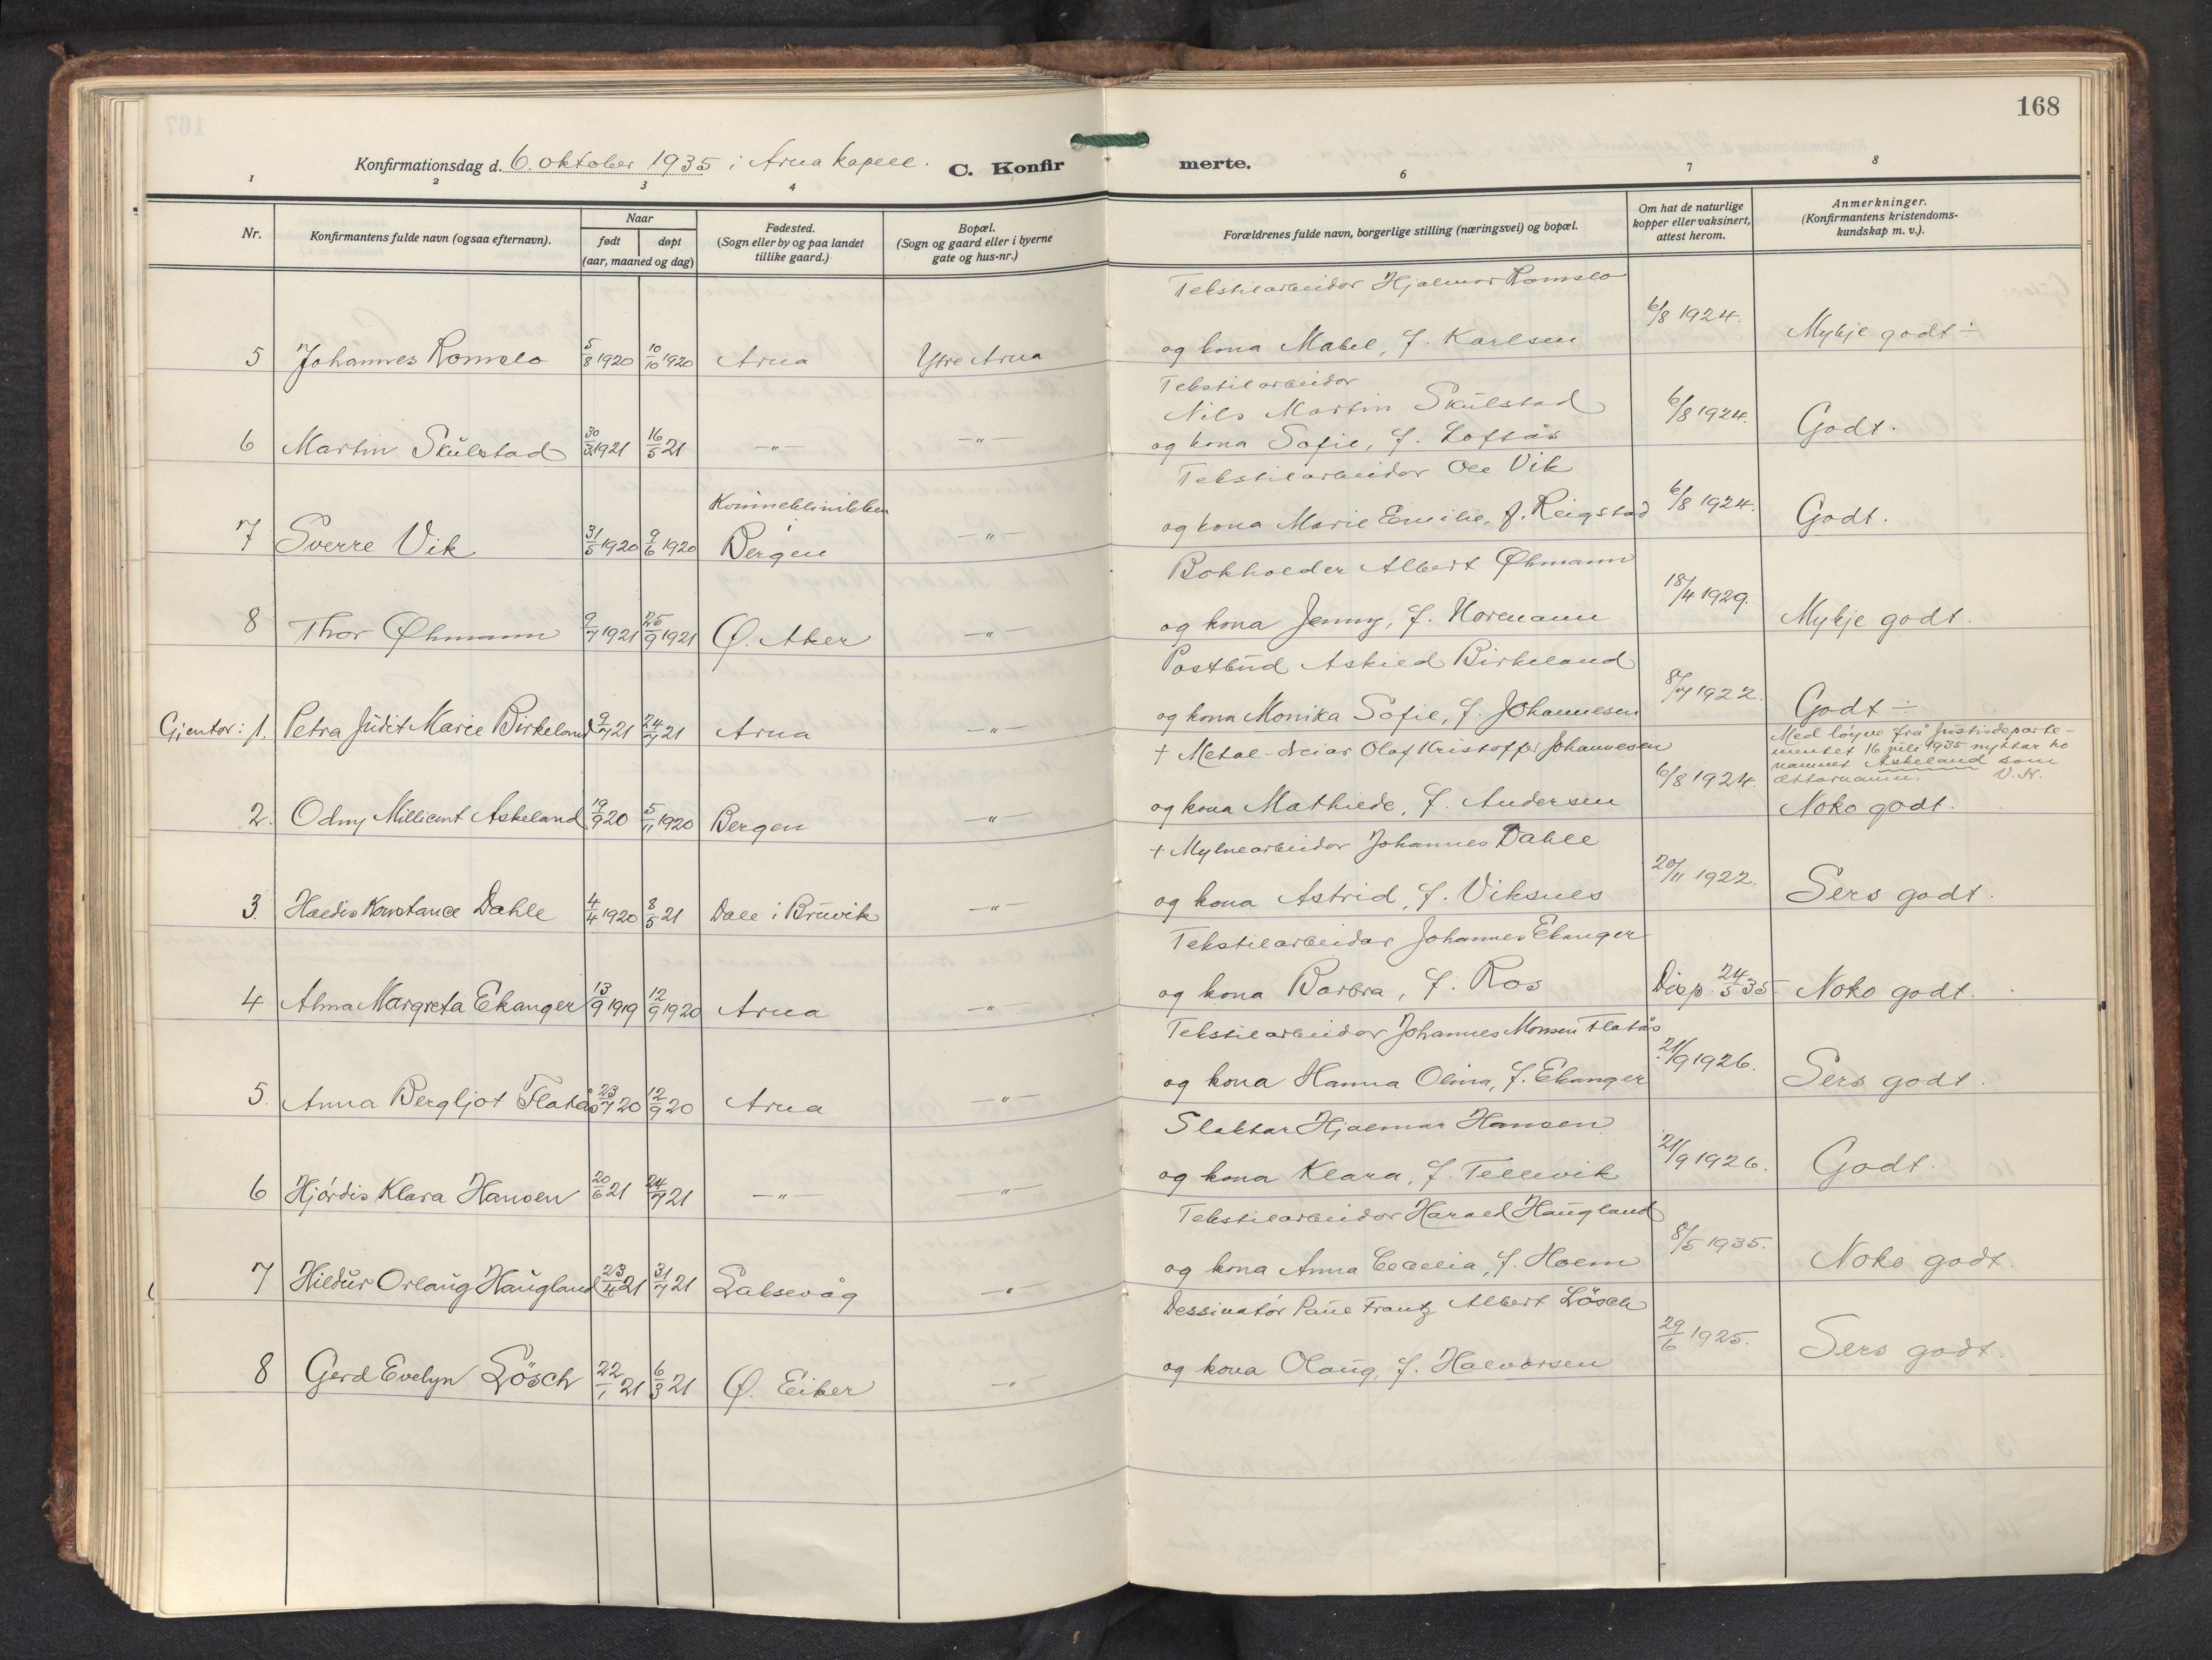 168
Konfirmationsdag d. 6. oktober 1935 i Arna kapell. C. Konfir merte.
1 2 3 4 6 7 8
Nr. Konfirmantens fulde navn (ogsaa efternavn). Naar født døpt (aar, maaned og dag) Fødested. (Sogn eller by og paa landet tillike gaard.) Bopæl. (Sogn og gaard eller i byerne gate og hus-nr.) Forældrenes fulde navn, borgerlige stilling (næringsvei) og bopæl. Om hat de naturlige kopper eller vaksinert, attest herom. Anmerkninger. (Konfirmantens kristendoms- kundskap m. v.).
Tekstilarbeidar Hjalmar Romslo
5 Johannes Romslo 5/8 1920 10/10 1920 Arna Ytre Arna og kona Mabel, f. Karlsen 6/8 1924. Mykje godt ÷
Tekstilarbeidar
Nils Martin Skulstad
6 Martin Skŭlstad 30/3 1921 16/5 21 -"- -"- og kona Sofie, f. Loftås 6/8 1924. Godt.
Tekstilarbeidar Ole Vik
Kvinneklinikken
7 Sverre Vik 31/5 1920 9/6 1920 i Bergen -"- og kona Marie Emilie, f. Reigstad 6/8 1924. Godt.
Bokholder Albert Øhmann
8 Thor Øhmann 9/7 1921 25/9 1921 Ø. Aker -"- og kona Jenny, f. Normann 18/4 1929. Mykje godt.
Postbŭd Askild Birkeland
Gjentor: 1. Petra Jŭdit Marie Birkeland 9/7 21 24/7 21 Arna -"- og kona Monika Sofie, f. Johannesen 8/7 1922. Godt ÷
+ Metal-dreiar Olaf Kristoffer Johannesen
Med løyve frå Justisdeparte-
mentet 16 juli 1935 nyttar ho
namnet Askeland som
ættarnamn. V.H.
2. Odny Millicent Askeland 19/9 20 5/11 1920 Bergen -"- og kona Mathilde, f. Andersen 6/8 1924. Noko godt.
+ Mylnearbeidar Johannes Dahle
3. Haldis Konstance Dahle 4/4 1920 8/5 21 Dale i Brŭvik -"- og kona Astrid, f. Viksnes 20/11 1922. Sers godt.
Tekstilarbeidar Johannes Ekanger
4 Alma Margreta Ekanger 13/9 1919 12/9 1920 Arna -"- og kona Barbra, f. Ros Disp. 24/5 35. Noko godt.
Tekstilarbeidar Johannes Monsen Flatås
5. Anna Bergljot Flatås 23/7 20 12/9 20 Arna -"- og kona Hanna Olina, f. Ekanger 21/9 1926. Sers godt.
Slaktar Hjalmar Hansen
6 Hjørdis Klara Hansen 20/6 21 24/7 21 -"- -"- og kona Klara, f. Tellevik 21/9 1926. Godt.
Tekstilarbeidar Harald Haŭgland
7 Hildŭr Orlaŭg Haŭgland 23/4 21 31/7 21 Laksevåg -"- og kona Anna Cecelia, f. Holm 8/5 1935. Noko godt.
Dessinatór Paul Frantz Albert Lösch
8 Gerd Evelyn Lösch 22/1 21 6/3 21 Ø. Eiker -"- og kona Olaŭg, f. Halvorsen 29/6 1925. Sers godt.